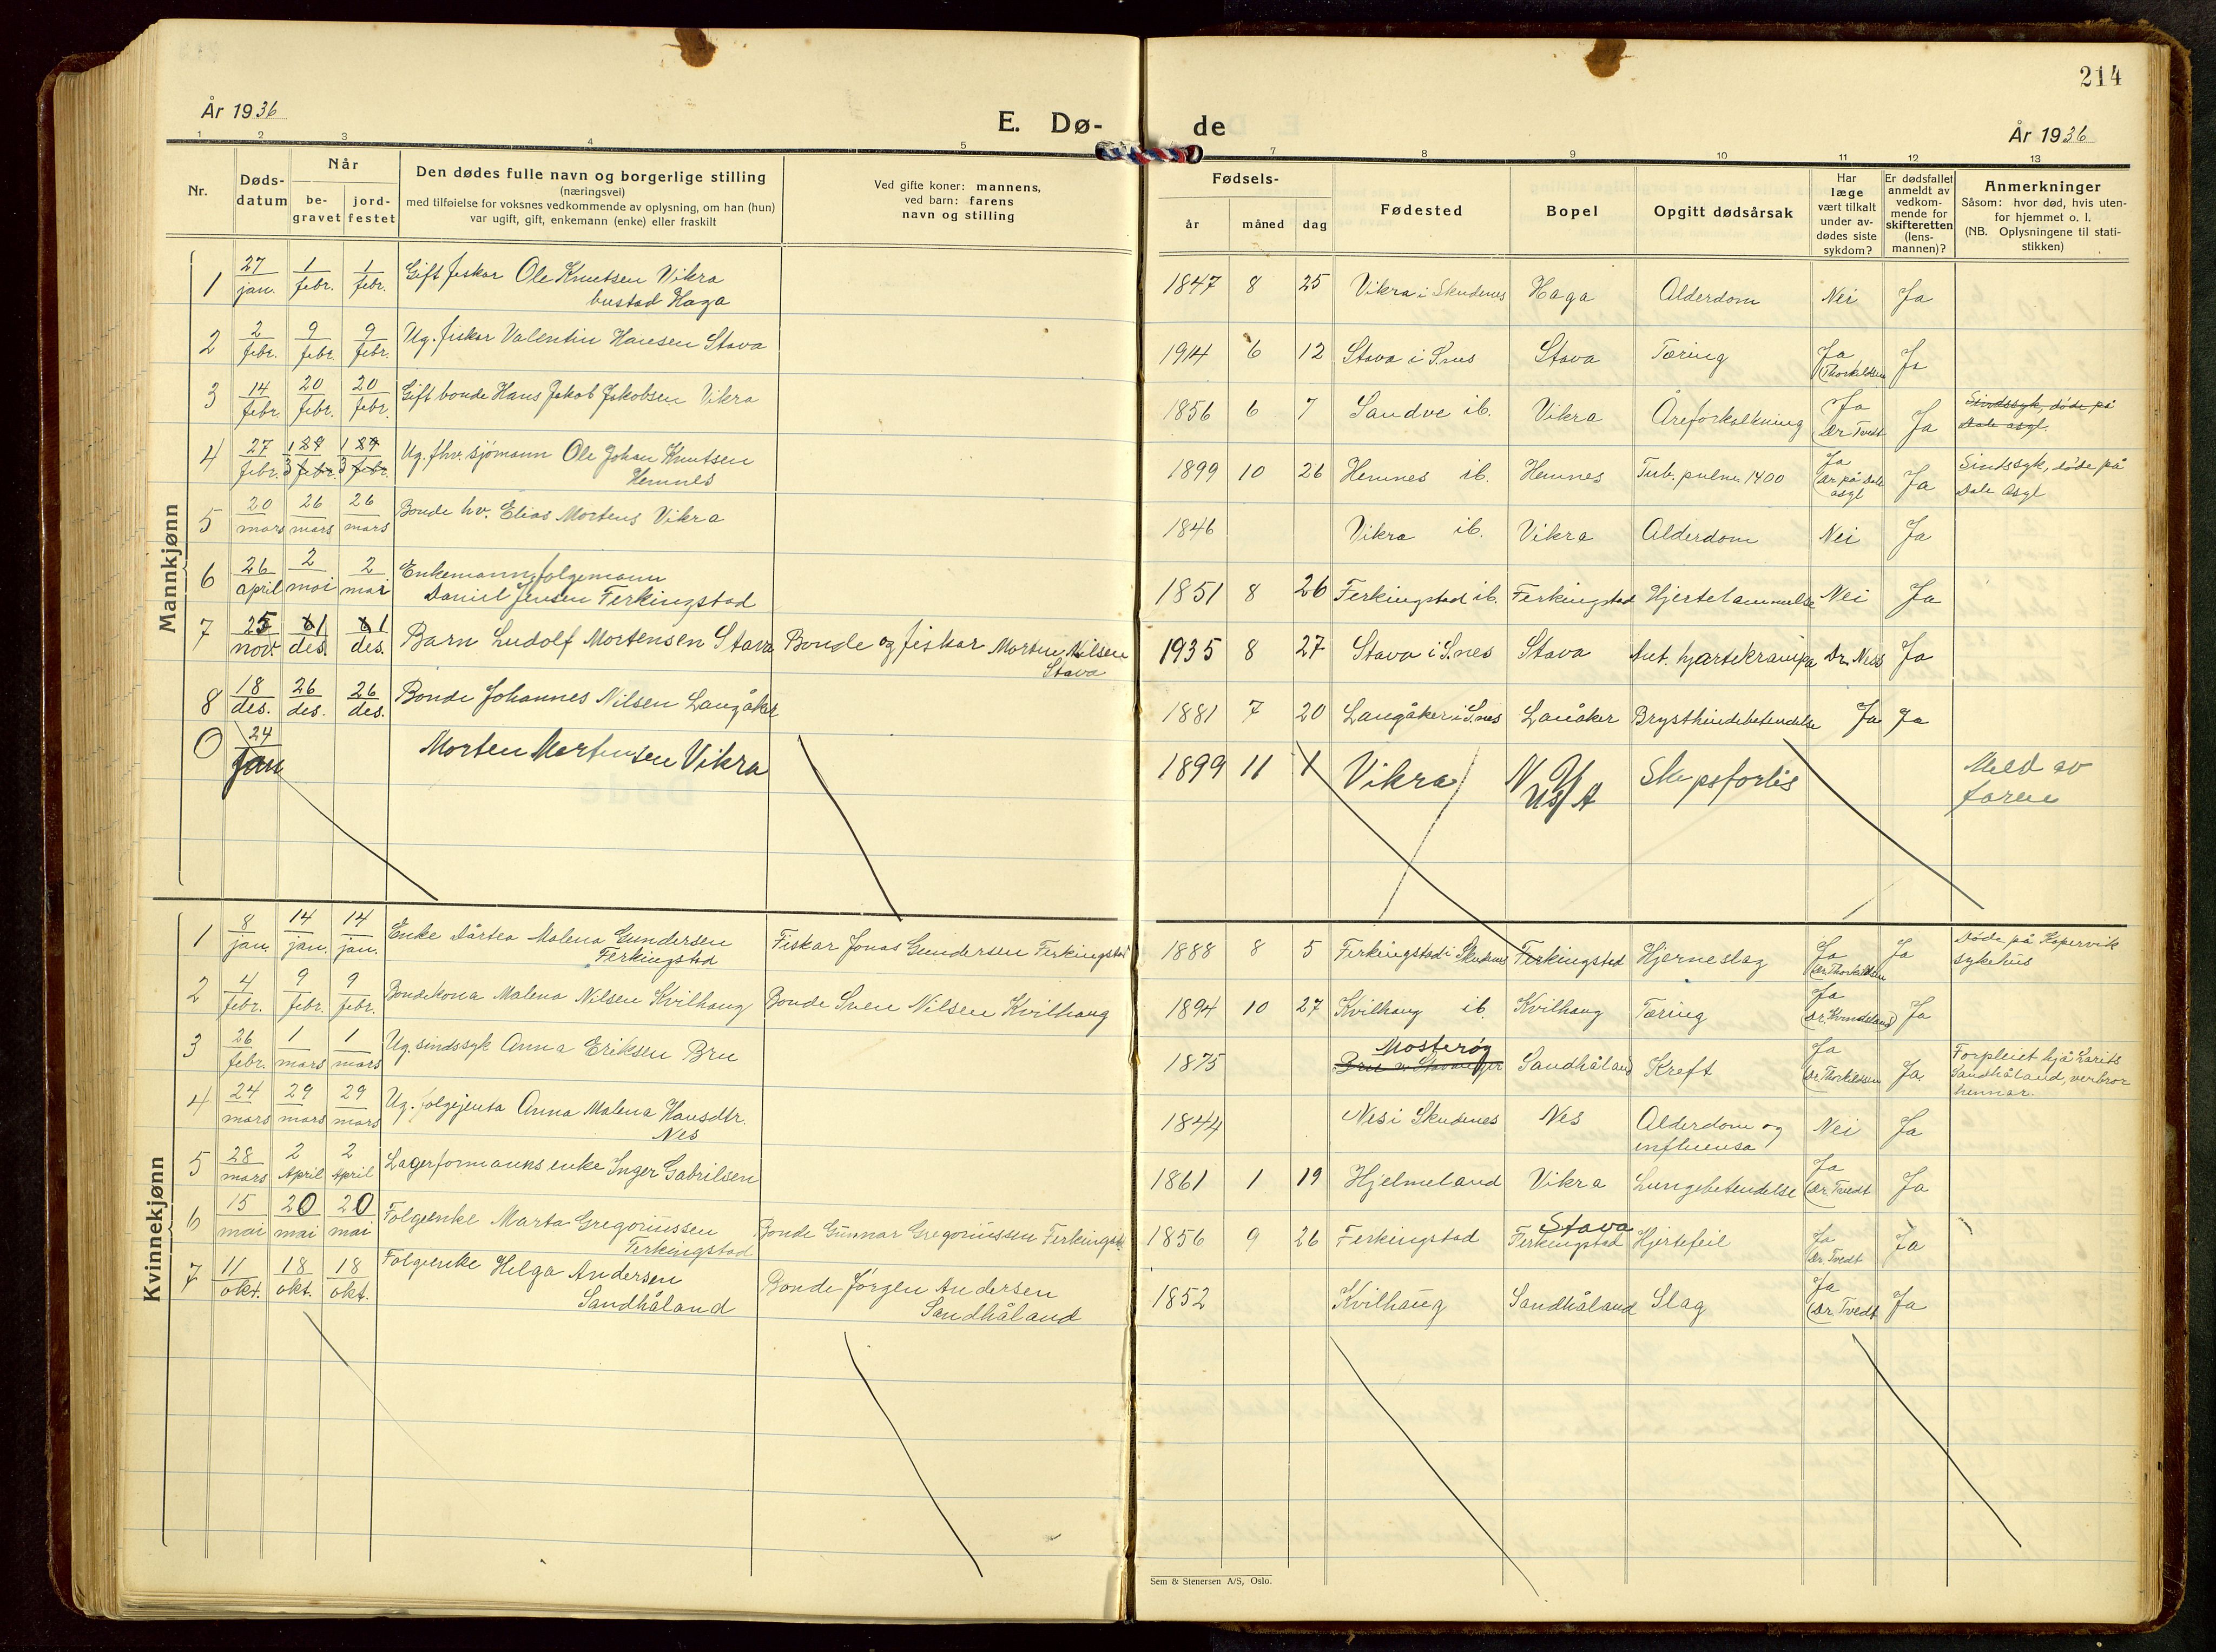 214
År 1936
E. Dø-
de
År 1936
1 2 3 4 5 7 8 9 10 11 12 13
Nr.
Døds-
datum
Når
be-
gravet
jord-
festet
Den dødes fulle navn og borgerlige stilling
(næringsvei)
med tilføielse for voksnes vedkommende av oplysning, om han (hun)
var ugift, gift, enkemann (enke) eller fraskilt
Ved gifte koner: mannens,
ved barn: farens
navn og stilling
Fødsels-
år måned dag
Fødested
Bopel
Opgitt dødsårsak
Har
læge
vært tilkalt
under av-
dødes siste
sykdom?
Er dødsfallet
anmeldt av
vedkom-
mende for
skifteretten
(lens-
mannen)?
Anmerkninger
Såsom: hvor død, hvis uten-
for hjemmet o. l.
(NB. Oplysningene til stati-
stikken)
Mannkjønn
1 27 jan. 1 febr. 1 febr. Gift fiskar Ole Knutsen Vikra
bustad Haga
1847 8 25 Vikra i Skudenes Haga Alderdom Nei Ja
2 2 febr. 9 febr. 9 febr. Ug. fiskar Valentin Hansen Stava
1914 6 12 Stava i S.nes Stava Tæring Ja Ja
(Thorkildsen
3 14 febr 20 febr. 20 febr. Gift bonde Hans Jakob Jakobsen Vikra
1856 6 7 Sandve ib. Vikra Åreforkalkning Ja Ja Sindssyk, døde på
Dr Tvedt Dale asyl.
4 27 febr. 1 3 29 febr. 1 3 29 febr. Ug. fhv. sjømann Ole Johan Knutsen
Hemnes
1899 10 26 Hemnes ib. Hemnes Tub. pulm. 1400 Ja Ja Sindssyk, døde på
(Dr på Dale
asyl Dale Asyl
5 20 mars 26 mars 26 mars Bonde hv. Elias Mortens Vikra
1846 Vikra ib. Vikra Alderdom Nei Ja
6 26 april 2 mai 2 mai Enkemann, folgemann
Daniel Jensen Ferkingstad
1851 8 26 Ferkingstad ib. Ferkingstad Hjertelammelse Nei Ja
7 25 nov. 1 des. 1 des. Barn Ludolf Mortensen Stava Bonde og fiskar Morten Nilsen
Stava
1935 8 27 Stava i S.nes Stava Ant. hjartekrampa Dr. Ness Ja
8 18 des. 26 des. 26 des. Bonde Johannes Nilsen Langåker
1881 7 20 Langåker i S.nes Lanåker Brysthindebetendelse Ja Ja
0 24 Jan Morten Mortensen Vikra
1899 11 1 Vikra N. Y. Skipsforlis Meld av
USA faren
Kvinnekjønn
1 8 jan. 14 jan. 14 jan. Enke Dårtea Malena Gundersen Fiskar Jonas Gundersen Ferkingstad
Ferkingstad
1888 8 5 Ferkingstad i Skudenes Ferkingstad Hjerneslag Ja Ja Døde på Kopervik
(Dr Thorkildsen sykehus
2 4 febr. 9 febr. 9 febr. Bondekona Malena Nilsen Kvilhaug Bonde Sven Nilsen Kvilhaug
1894 10 27 Kvilhaug ib. Kvilhaug Tæring Ja Ja
(Dr. Kvindeland)
3 26 febr. 1 mars 1 mars Ug. sindssyk Anna Eriksen Bru
Mosterøy
1875 Bru v. Stavanger Sandhåland Kreft Ja Ja. Forpleiet hjå Larits
Dr Thorkildsen Sandhåland, verbror
hennar.
4 24 mars 29 mars 29 mars Ug. folgejenta Anna Malena Hansdtr.
Nes
1844 Nes i Skudenes Nes Alderdom og Nei Ja
influensa
5 28 mars 2 April 2 April Lagerformanns enke Inger Gabrilsen
1861 1 19 Hjelmeland Vikra Lungebetendelse Ja Ja
(Dr. Tvedt
6 15 mai 20 mai 20 mai Folgeenke Marta Gregoriussen Bonde Gunnar Gregoriussen Ferkingstd.
Ferkingstad
Stava
1856 9 26 Ferkingstad Ferkingstad Hjertefeil Ja Ja
Dr. Tvedt
7 11 okt. 18 okt. 18 okt. Folgeenke Helga Andersen Bonde Jørgen Andersen
Sandhåland Sandhåland
1852 Kvilhaug Sandhåland Slag Ja Ja
(Dr Tvedt
Sem & Stenersen A/S, Oslo.